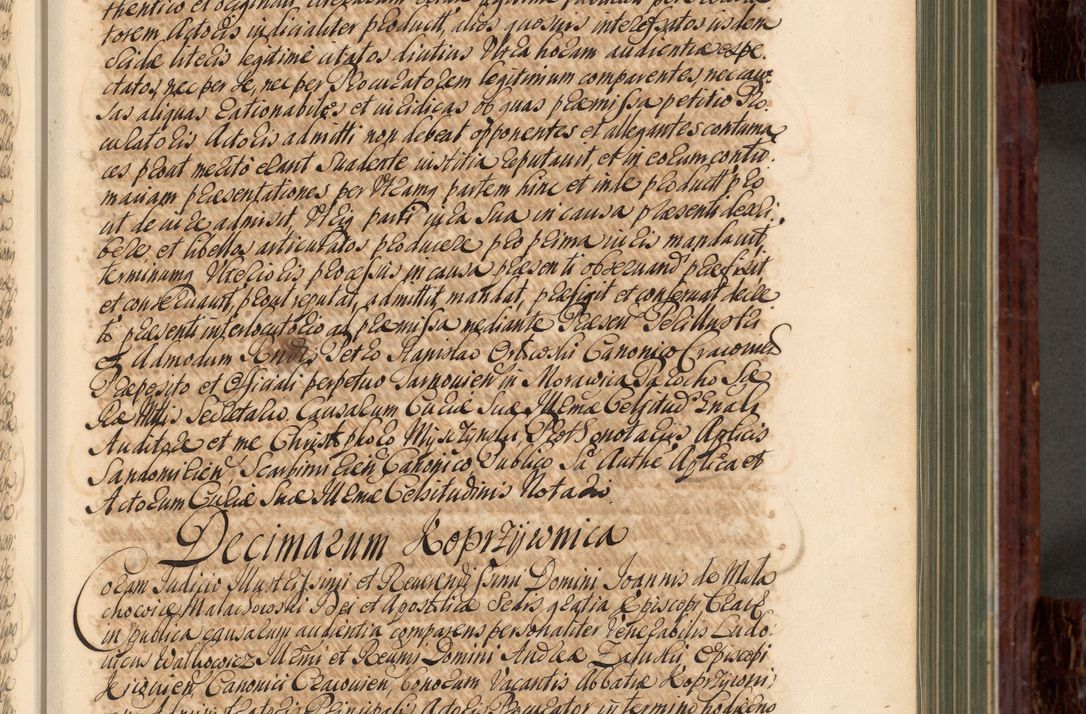 thentico et originali
torem Actoris iudicialiter producti, alios quosvis interessatos iisdem
literis legitime citatos diutius Ultra horam audientiae expe
ctatos, nec per se, nec per Procuratorem legitimum comparentes nec cau
sas aliquas rationabiles et iuridicas ob quas praemissa petitio Pro
curatoris Actoris admitti non debeat opponentes et allegantes contuma
ces prout merito erant Suadente iustitia reputavit, et in eorum contu
maciam praesentationes per Utramq partem hinc et inde product pro
ut de iure admisit, Utriq parti iura Sua in causa praesenti descri
bere et libellos articulatos producere pro prima iuris mandavit,
terminumq Ulterioris processus in causa praesenti observand praefixit
et conservavit, prout reputat, admittit, mandat, praefigit et conservat decre
to praesenti interlocutorio ad praemissa mediante Praesen Perillustri
et Admodum Rndis Petro Stanislao Orłowski Canonico Cracovien
Praeposito et Officiali perpetuo Tarnovien in Morawica Parocho Sa
Rae Mttis Secretario Causarum Curiae Suae Illmae Celsitud Gnali
Auditore et me Christophoro Myszynski Prothonotario Aplicis
Sandomirien Scarbimirien Canonico Publico Sa Authe Aplica et
Actorum Curiae Suae Illmae Celsitudinis Notario
Decimarum Koprzywnica
Coram Iudicio Illustrissimi et Reverendissimi Domini Joannis de Mala
chowice Małachowski Dei et Apostolica Sedis gratia Episcopi Cracov
in publica causarum audientia comparens personaliter Venerabilis Ludo
vicus Walkowicz Illmi et Rendmi Domini Andreae Załuski, Episcopi
Kiiovien, Canonici Cracovien, bonorum Vacantis Abbatiae Koprzyvni
Administratoris Principalis Actoris Procurator in termino hodierno